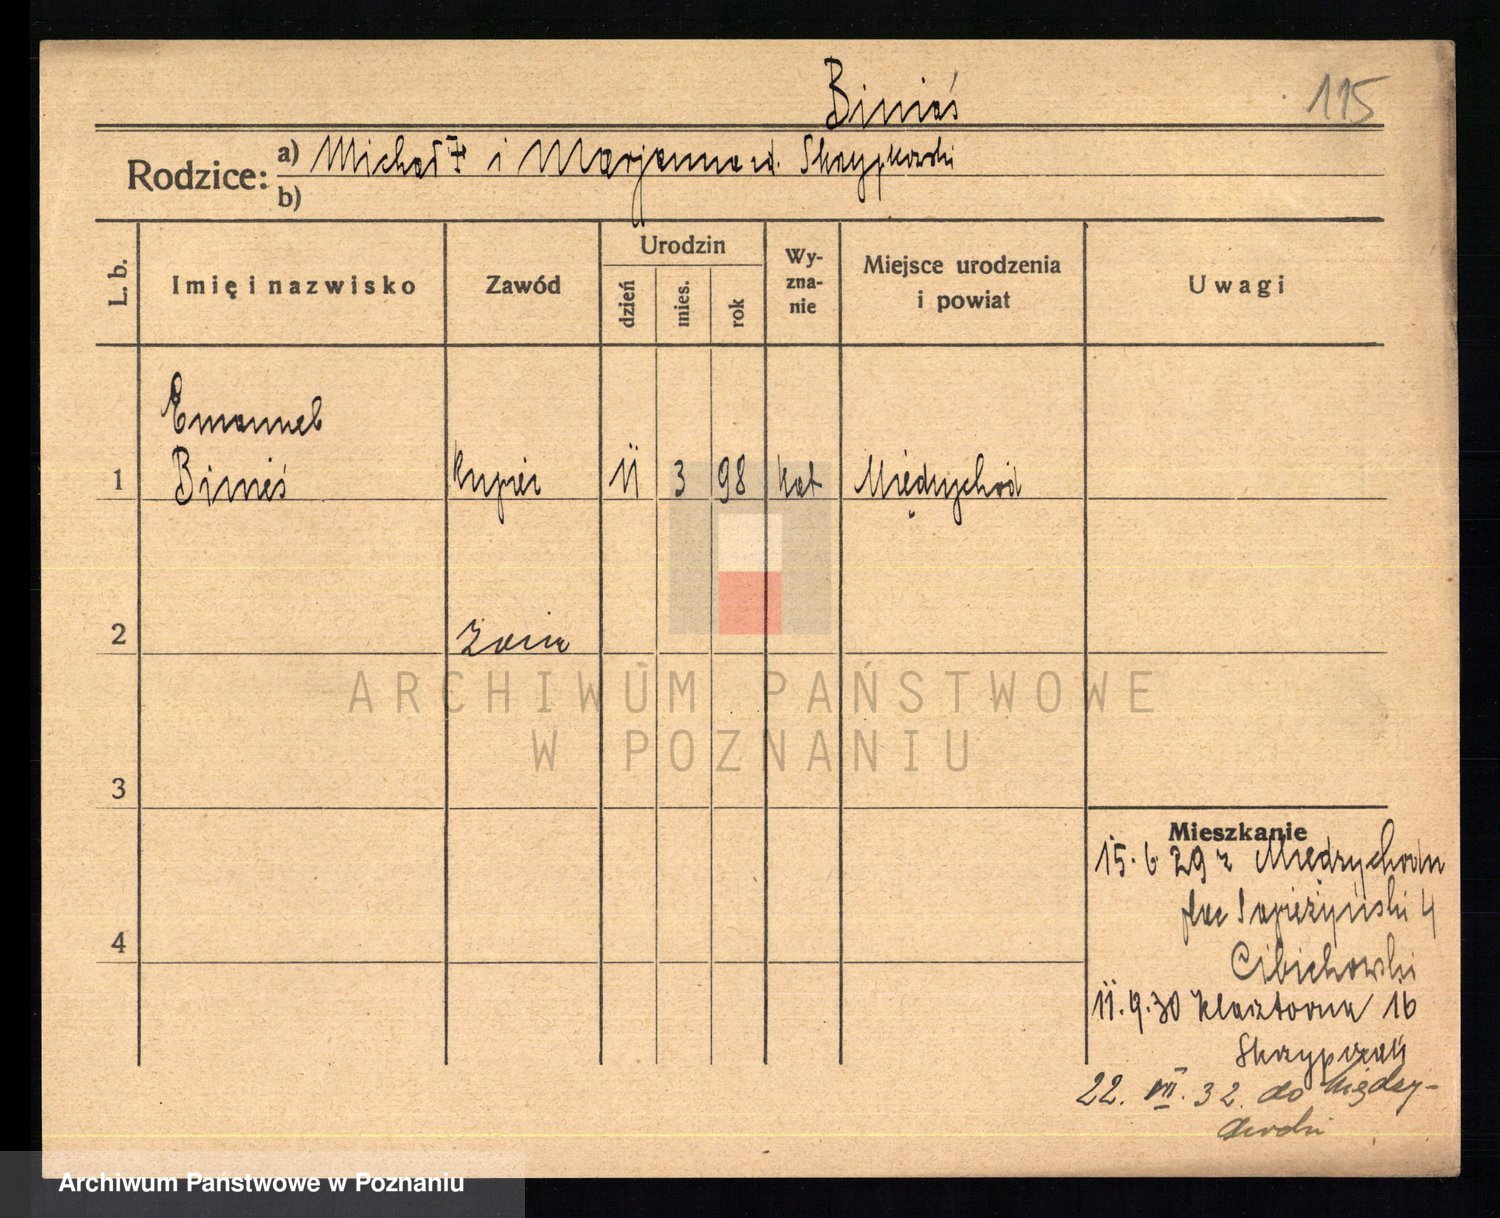 Binieś
115
Rodzice: a) Michał † i Marjanna zd. Skrzypkowski
b)
L. b.
Imię i nazwisko
Zawód
Urodzin
dzień
mies.
rok
Wy-
zna-
nie
Miejsce urodzenia
i powiat
Uwagi
Emanuel
1 Binieś kupiec 11 3 98 kat Międzychód
2
3
4
ARCHIWUM PAŃSTWOWE
W POZNANIU
Mieszkanie
15.6 29 z Międzychodu
plac Sapieżyński 4
Cibichowski
11.9.30 Klasztorna 16
Skrzypczak
22. VII. 32. do Między-
chodu
Archiwum Państwowe w Poznaniu